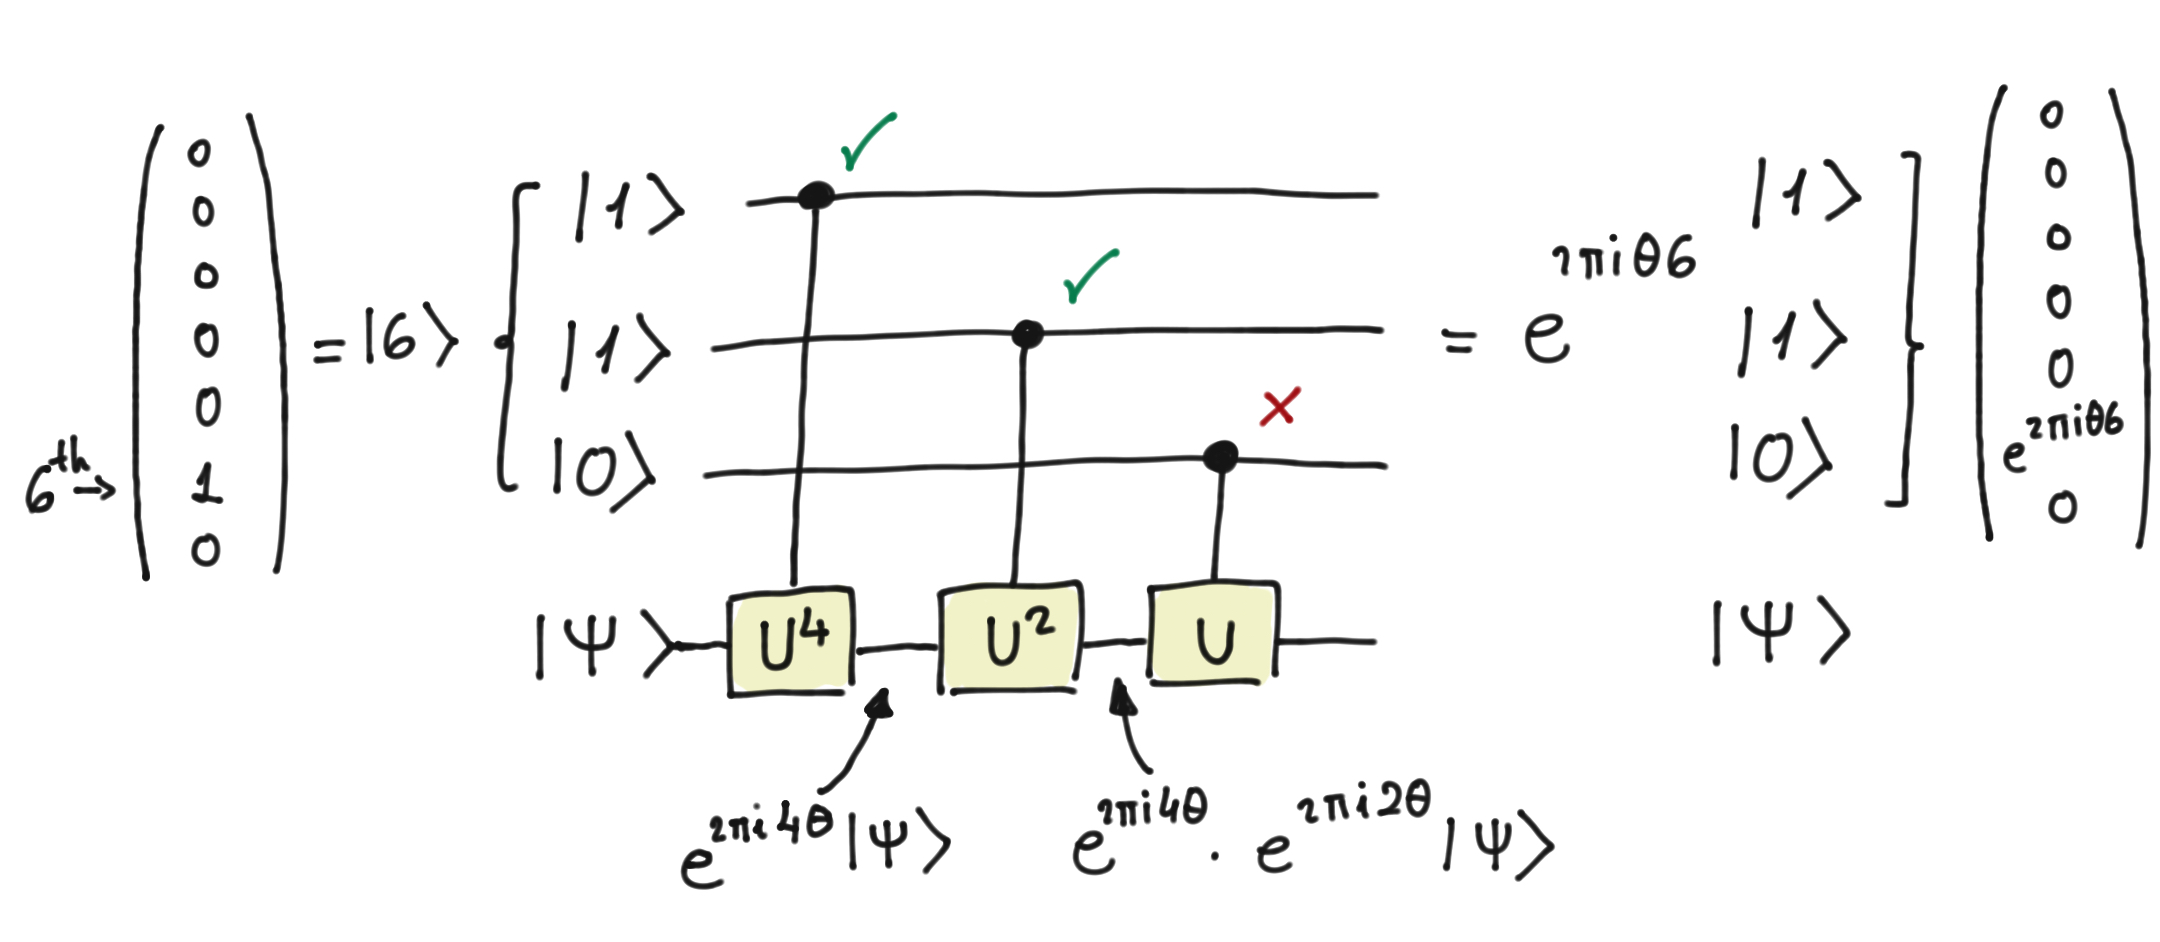 0
0
0
0
0
6th → 1
0
= |6⟩
|1⟩
|1⟩
|0⟩
|Ψ⟩
U⁴
U²
U
e^{2πi4θ} |Ψ⟩
e^{2πi4θ} · e^{2πi2θ} |Ψ⟩
= e^{2πiθ6}
|1⟩
|1⟩
|0⟩
|Ψ⟩
0
0
0
0
0
e^{2πiθ6}
0